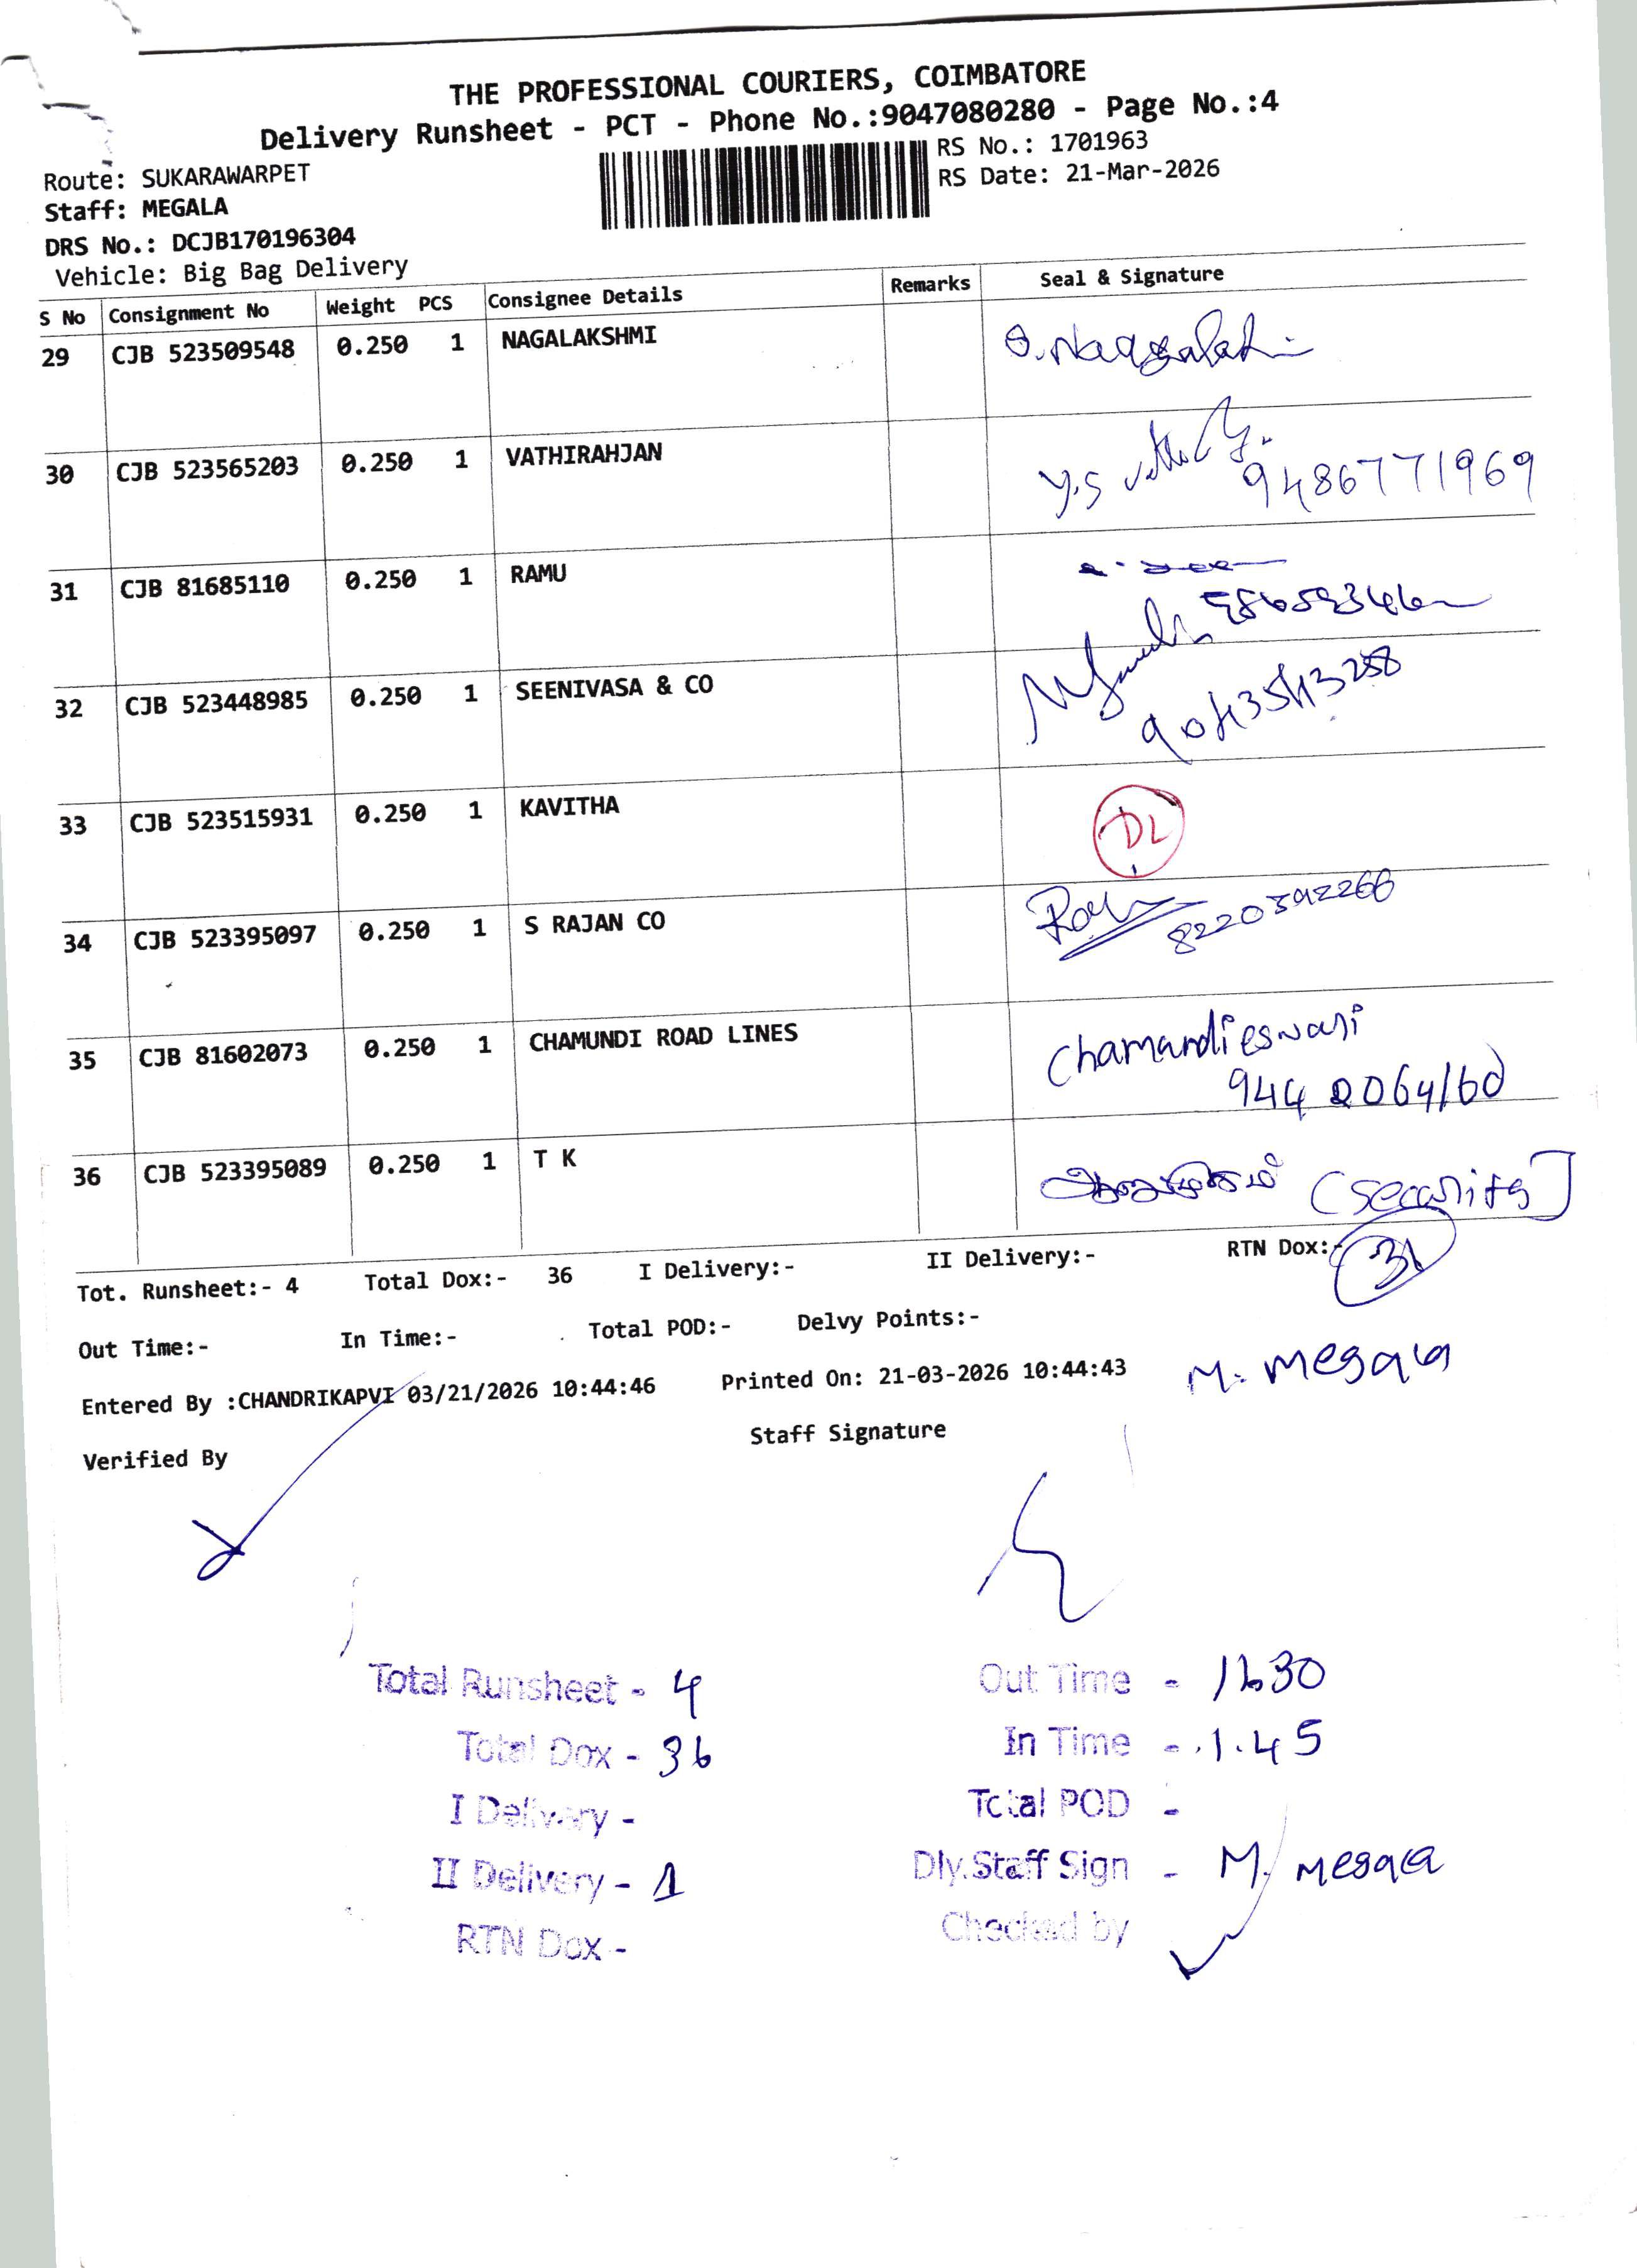 THE PROFESSIONAL COURIERS, COIMBATORE
Delivery Runsheet - PCT - Phone No.:9047080280 - Page No.:4
Route: SUKARAWARPET
RS No.: 1701963
Staff: MEGALA
RS Date: 21-Mar-2026
DRS No.: DCJB170196304
Vehicle: Big Bag Delivery
S No Consignment No Weight PCS Consignee Details Remarks Seal & Signature
29 CJB 523509548 0.250 1 NAGALAKSHMI
30 CJB 523565203 0.250 1 VATHIRAHJAN
9486771969
31 CJB 81685110 0.250 1 RAMU
32 CJB 523448985 0.250 1 SEENIVASA & CO
33 CJB 523515931 0.250 1 KAVITHA DL
34 CJB 523395097 0.250 1 S RAJAN CO 8220592266
35 CJB 81602073 0.250 1 CHAMUNDI ROAD LINES Chamandieswari
9442064160
36 CJB 523395089 0.250 1 T K (Security)
Tot. Runsheet:- 4 Total Dox:- 36 I Delivery:- II Delivery:- RTN Dox:- 31
Out Time:- In Time:- Total POD:- Delvy Points:-
Entered By :CHANDRIKAPVI 03/21/2026 10:44:46 Printed On: 21-03-2026 10:44:43 M. Megala
Verified By Staff Signature
Total Runsheet - 4 Out Time - 11.30
Total Dox - 36 In Time - 1.45
I Delivery - Total POD -
II Delivery - 1 Dly.Staff Sign - M. Megala
RTN Dox - Checked by